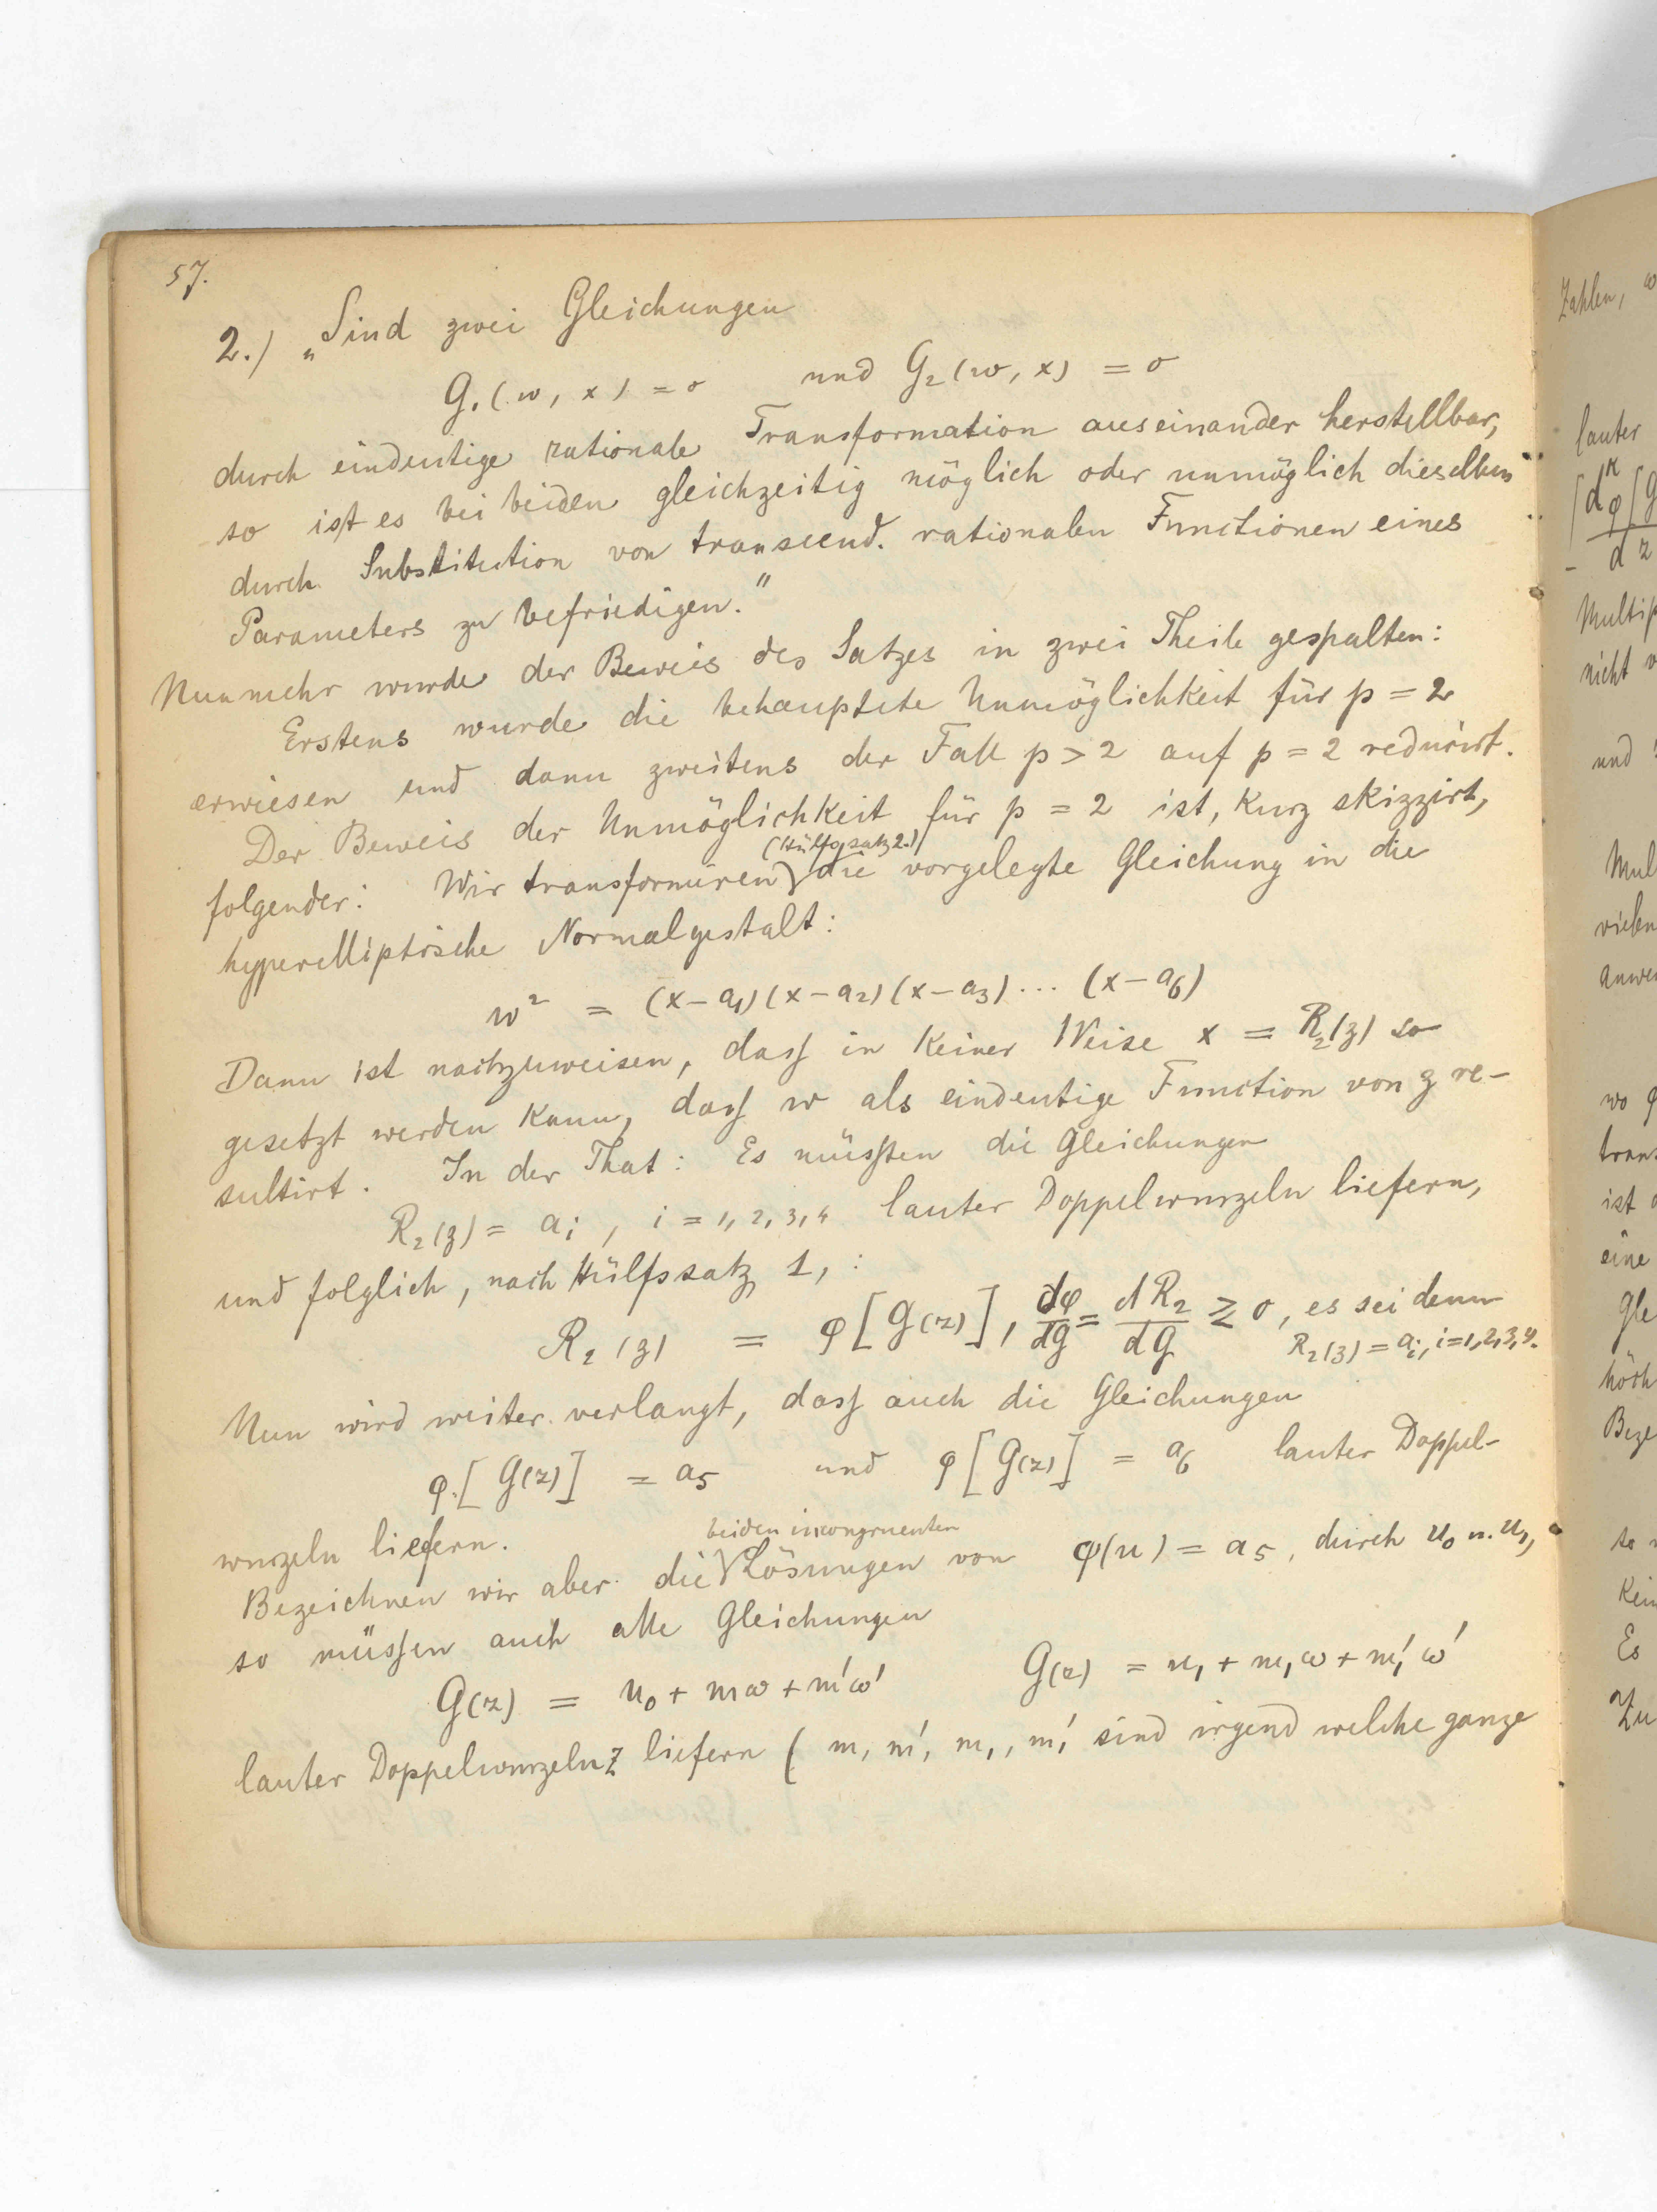 57.
2.) „Sind zwei Gleichungen
G₁(w, x) = 0 und G₂(w, x) = 0
durch eindeutige rationale Transformation auseinander herstellbar,
so ist es bei beiden gleichzeitig möglich oder unmöglich dieselben
durch Substitution von transcend. rationalen Functionen eines
Parameters zu befriedigen."
Nunmehr wurde der Beweis des Satzes in zwei Theile gespalten:
Erstens wurde die behauptete Unmöglichkeit für p = 2
erwiesen und dann zweitens der Fall p > 2 auf p = 2 reducirt.
Der Beweis der Unmöglichkeit für p = 2 ist, kurz skizzirt,
folgender: Wir transformiren (Hülfssatz 2.) die vorgelegte Gleichung in die
hyperelliptische Normalgestalt:
w² = (x-a₁)(x-a₂)(x-a₃)... (x-a₆)
Dann ist nachzuweisen, dass in keiner Weise x = R₂(z) so
gesetzt werden kann, dass w als eindeutige Function von z re-
sultirt. In der That: Es müssten die Gleichungen
R₂(z) = aᵢ, i = 1, 2, 3, 4 lauter Doppelwurzeln liefern,
und folglich, nach Hülfssatz 1, :
R₂(z) = φ[G(z)], dφ/dG = dR₂/dG ≷ 0, es sei denn
R₂(z) = aᵢ, i=1,2,3,4.
Nun wird weiter verlangt, dass auch die Gleichungen
φ[G(z)] = a₅ und φ[G(z)] = a₆ lauter Doppel-
wurzeln liefern.
Bezeichnen wir aber die beiden incongruenten Lösungen von φ(u) = a₅, durch u₀ u. u₁,
so müssen auch alle Gleichungen
G(z) = u₀ + mω + m'ω' G(z) = u₁ + m₁ω + m₁'ω'
lauter Doppelwurzeln z liefern (m, m', m₁, m₁' sind irgend welche ganze
Zahlen,
lauter
nicht
und
wo φ
ist
eine
Es
Zu